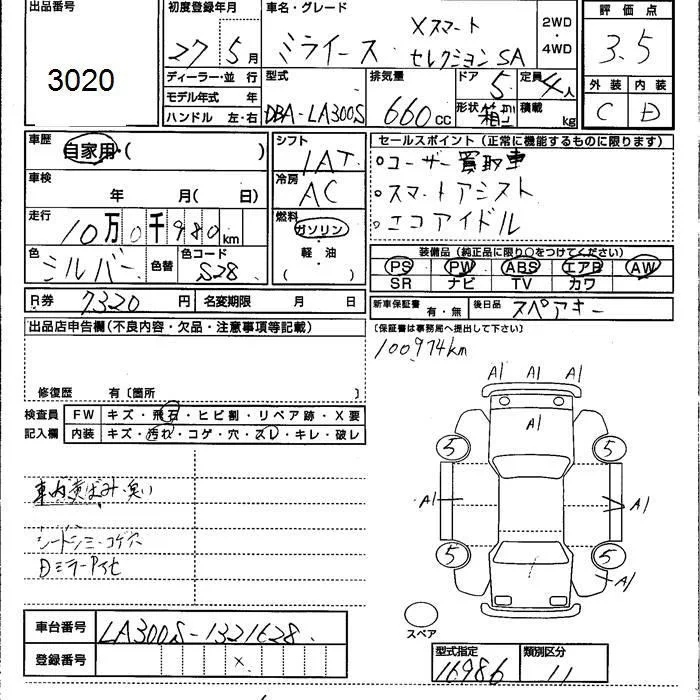 出品番号 3020
初度登録年月 27 5月
車名・グレード ミライース Xスマート セレクションSA
2WD・4WD
評価点 3.5
外装 C 内装 D
ディーラー・並行
モデル年式 年
ハンドル 左・右
型式 DBA-LA300S
排気量 660cc
ドア 5
形状 箱型
定員 4人
積載 kg
車歴 自家用・( )
シフト IAT
車検 年 月( 日)
冷房 AC
走行 10万0千980km
燃料 ガソリン・軽油・( )
色 シルバー 色替 色コード S28
R券 7320円 名変期限 月 日
セールスポイント(正常に機能するものに限ります)
。ユーザー買取車
。スマートアシスト
。エコアイドル
装備品(純正品に限り○をつけてください)
PS PW ABS エアB AW
SR ナビ TV カワ
新車保証書 有・無 後日品 スペアキー
(保証書は事務局へ提出して下さい)
出品店申告欄(不良内容・欠品・注意事項等記載)
100974km
修復歴 有〔箇所 〕
検査員記入欄 FW キズ・飛石・ヒビ割・リペア跡・X要
内装 キズ・汚れ・コゲ・穴・スレ・キレ・破レ
A1 A1 A1
A1
5 5
A1 A1
5 5
A1
車内黄ばみ・臭い
シートシミ・コゲ穴
スペア
車台番号 LA300S-1321628
登録番号 x
型式指定 16986
類別区分 11